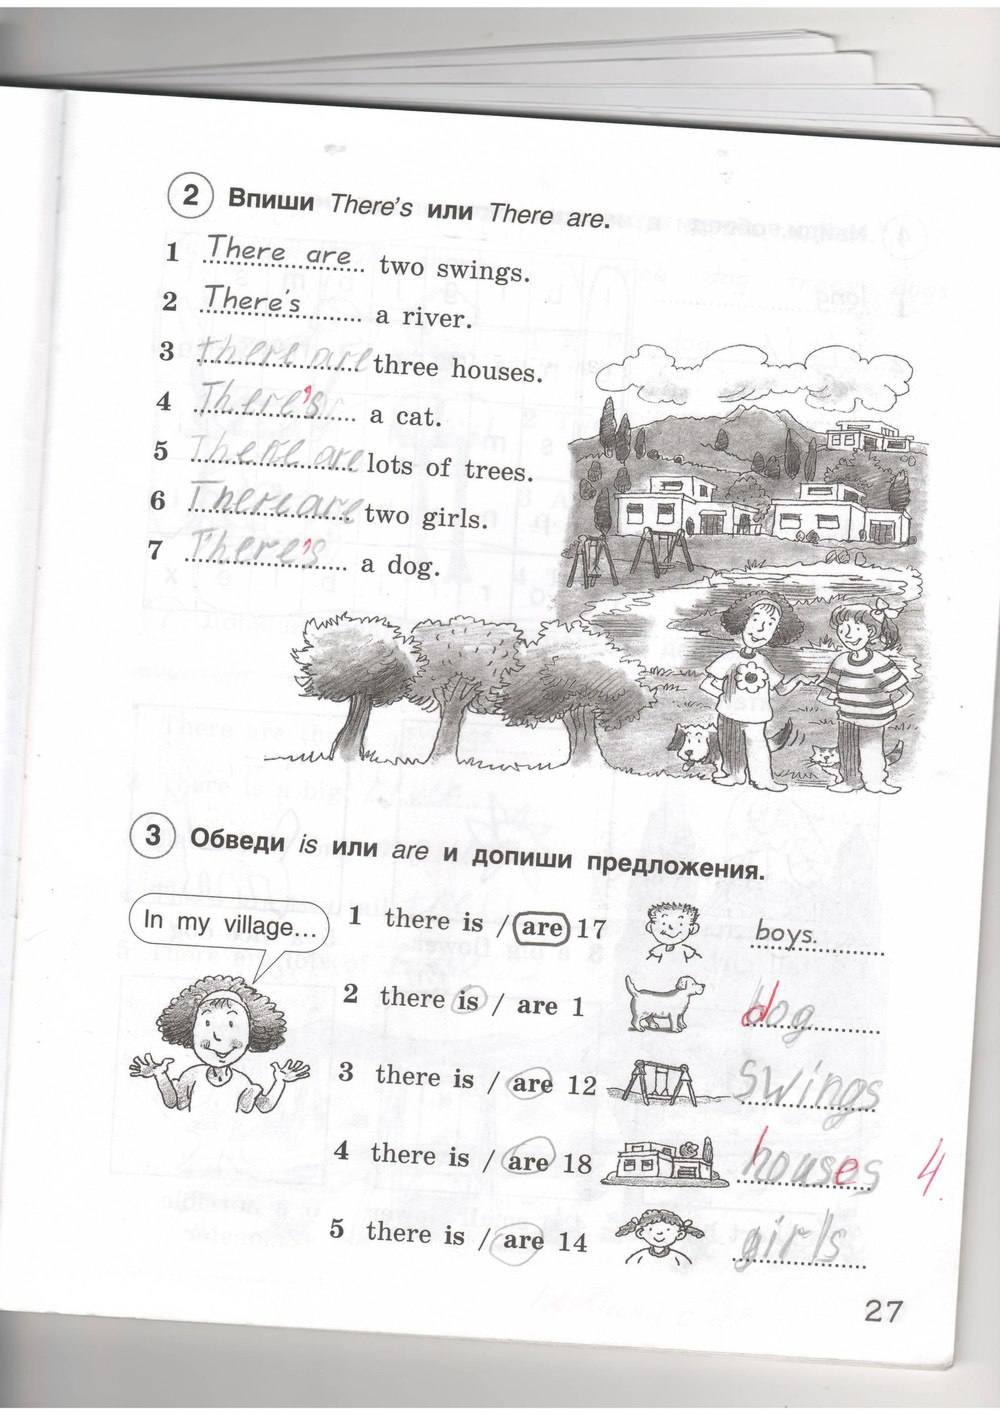 2 Впиши There's или There are.
1 There are two swings.
2 There's a river.
3 there are three houses.
4 There's a cat.
5 There are lots of trees.
6 There are two girls.
7 There's a dog.
3 Обведи is или are и допиши предложения.
In my village...
1 there is / are 17 boys.
2 there is / are 1 dog
3 there is / are 12 swings
4 there is / are 18 houses 4.
5 there is / are 14 girls
27